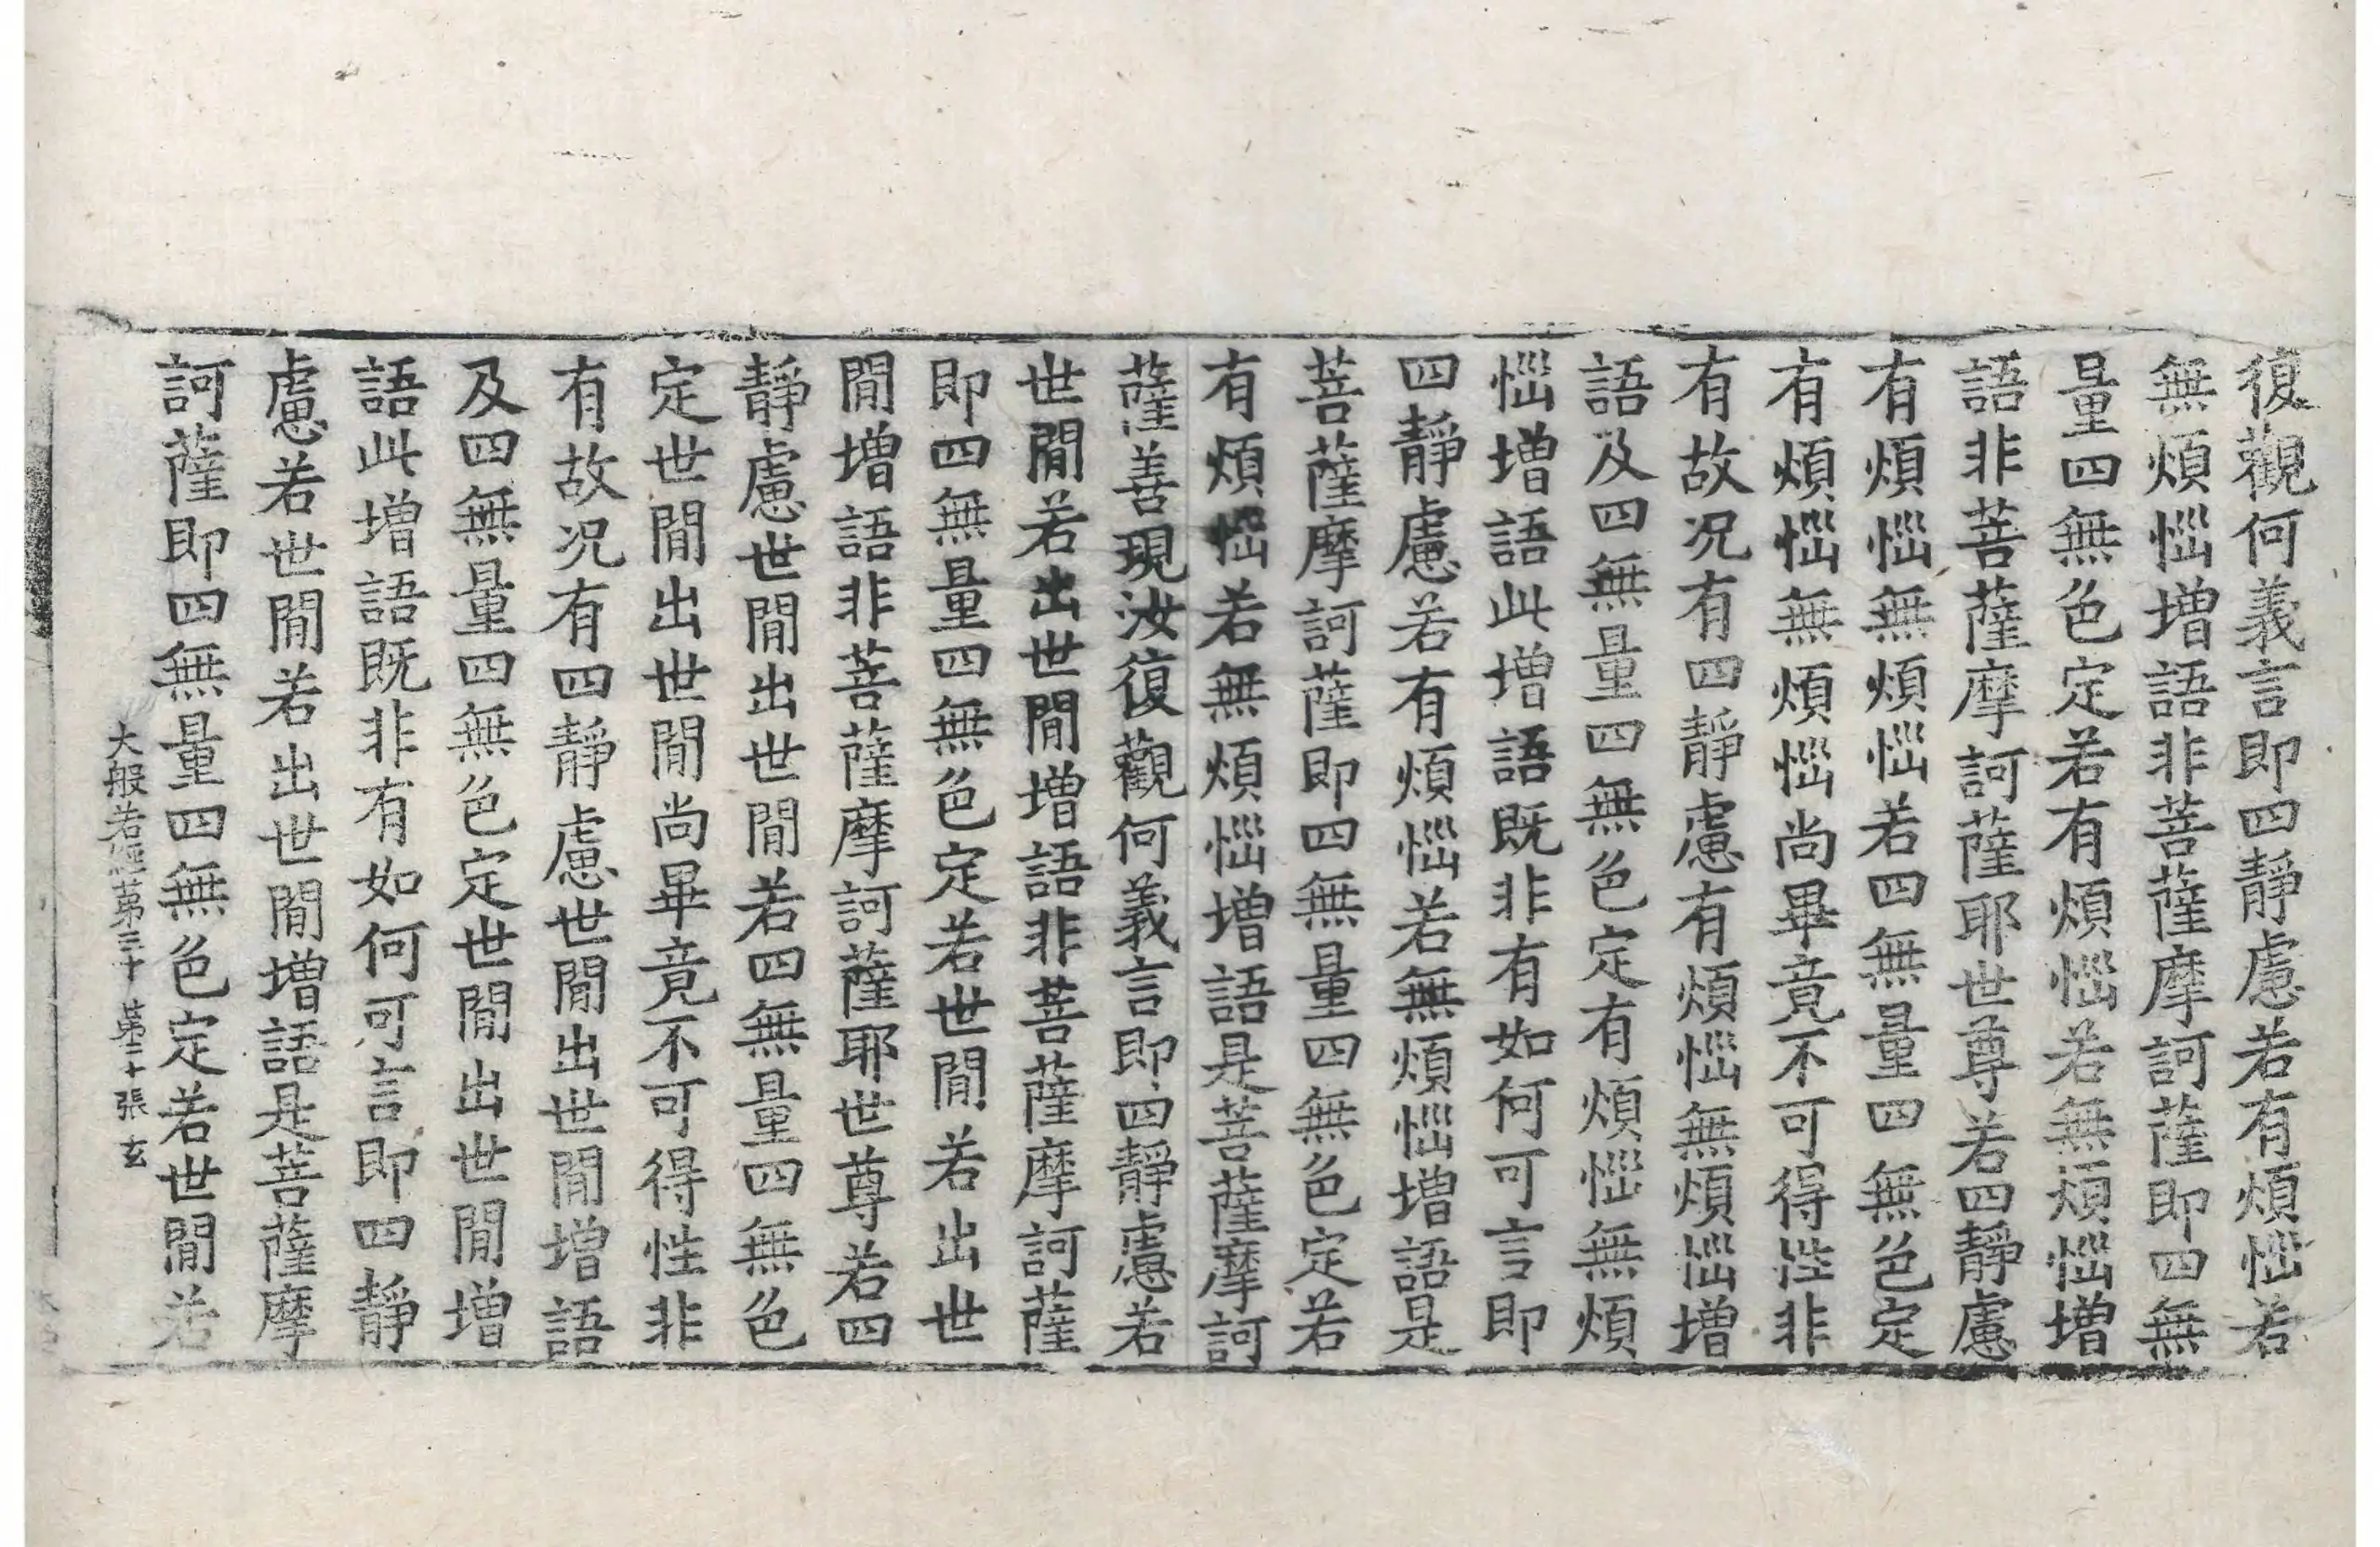 復觀何義言即四靜慮若有煩惱若
無煩惱增語非菩薩摩訶薩即四無
量四無色定若有煩惱若無煩惱增
語非菩薩摩訶薩耶世尊若四靜慮
有煩惱無煩惱若四無量四無色定
有煩惱無煩惱尚畢竟不可得性非
有故况有四靜慮有煩惱無煩惱增
語及四無量四無色定有煩惱無煩
惱增語此增語既非有如何可言即
四靜慮若有煩惱若無煩惱增語是
菩薩摩訶薩即四無量四無色定若
有煩惱若無煩惱增語是菩薩摩訶
薩善現汝復觀何義言即四靜慮若
世閒若出世閒增語非菩薩摩訶薩
即四無量四無色定若世閒若出世
閒增語非菩薩摩訶薩耶世尊若四
靜慮世閒出世閒若四無量四無色
定世閒出世閒尚畢竟不可得性非
有故况有四靜慮世閒出世閒增語
及四無量四無色定世閒出世閒增
語此增語既非有如何可言即四靜
慮若世閒若出世閒增語是菩薩摩
訶薩即四無量四無色定若世閒若
大般若經第三十 第二十張 玄